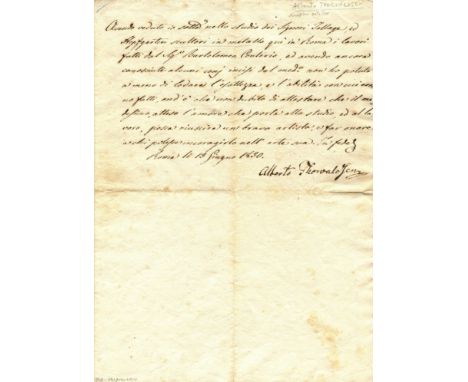 Alberto THORVALDSEN
Avendo veduto io sottodo nello studio dei Signori Jollage, ed
Hopfgarten scultori in metallo qui in Roma i lavori
fatti dal Sigr Bartolomeo Conterio, ed avendo ancora
conosciuto alcuni incisi dal medmo non ho potuto
a meno di lodare l'esattezza, e l'abilità con cui erano
fatti, ond'è che non dubito di attestare che il medesimo
atteso l'amore che porta allo studio, ed al lavoro,
possa riuscire un bravo artista, e far onore
a chi nell'arte sua In fede
Roma li 18 Giugno 1830.
Alberto Thorvaldsen